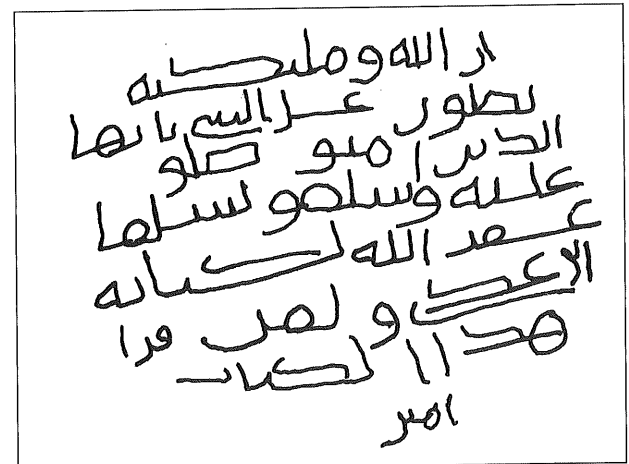 ان الله وملئكته
يصلون على النبي يايها
الذين امنو صلو
عليه وسلمو تسليما
غفر الله
ولمن قرا
هذا الكتاب
امين